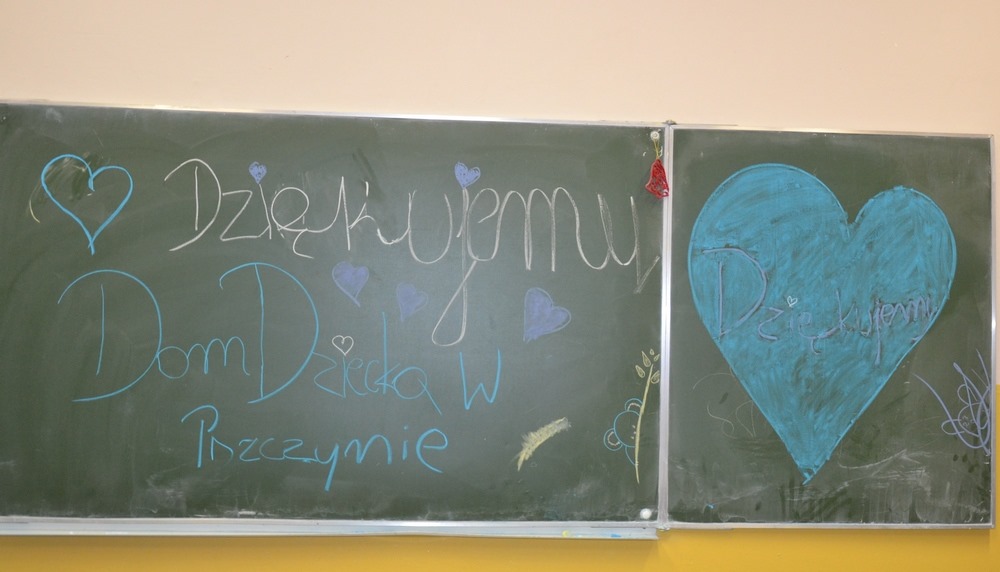 Dziękujemy
Dom Dziecka w
Pszczynie
Dziękujemy